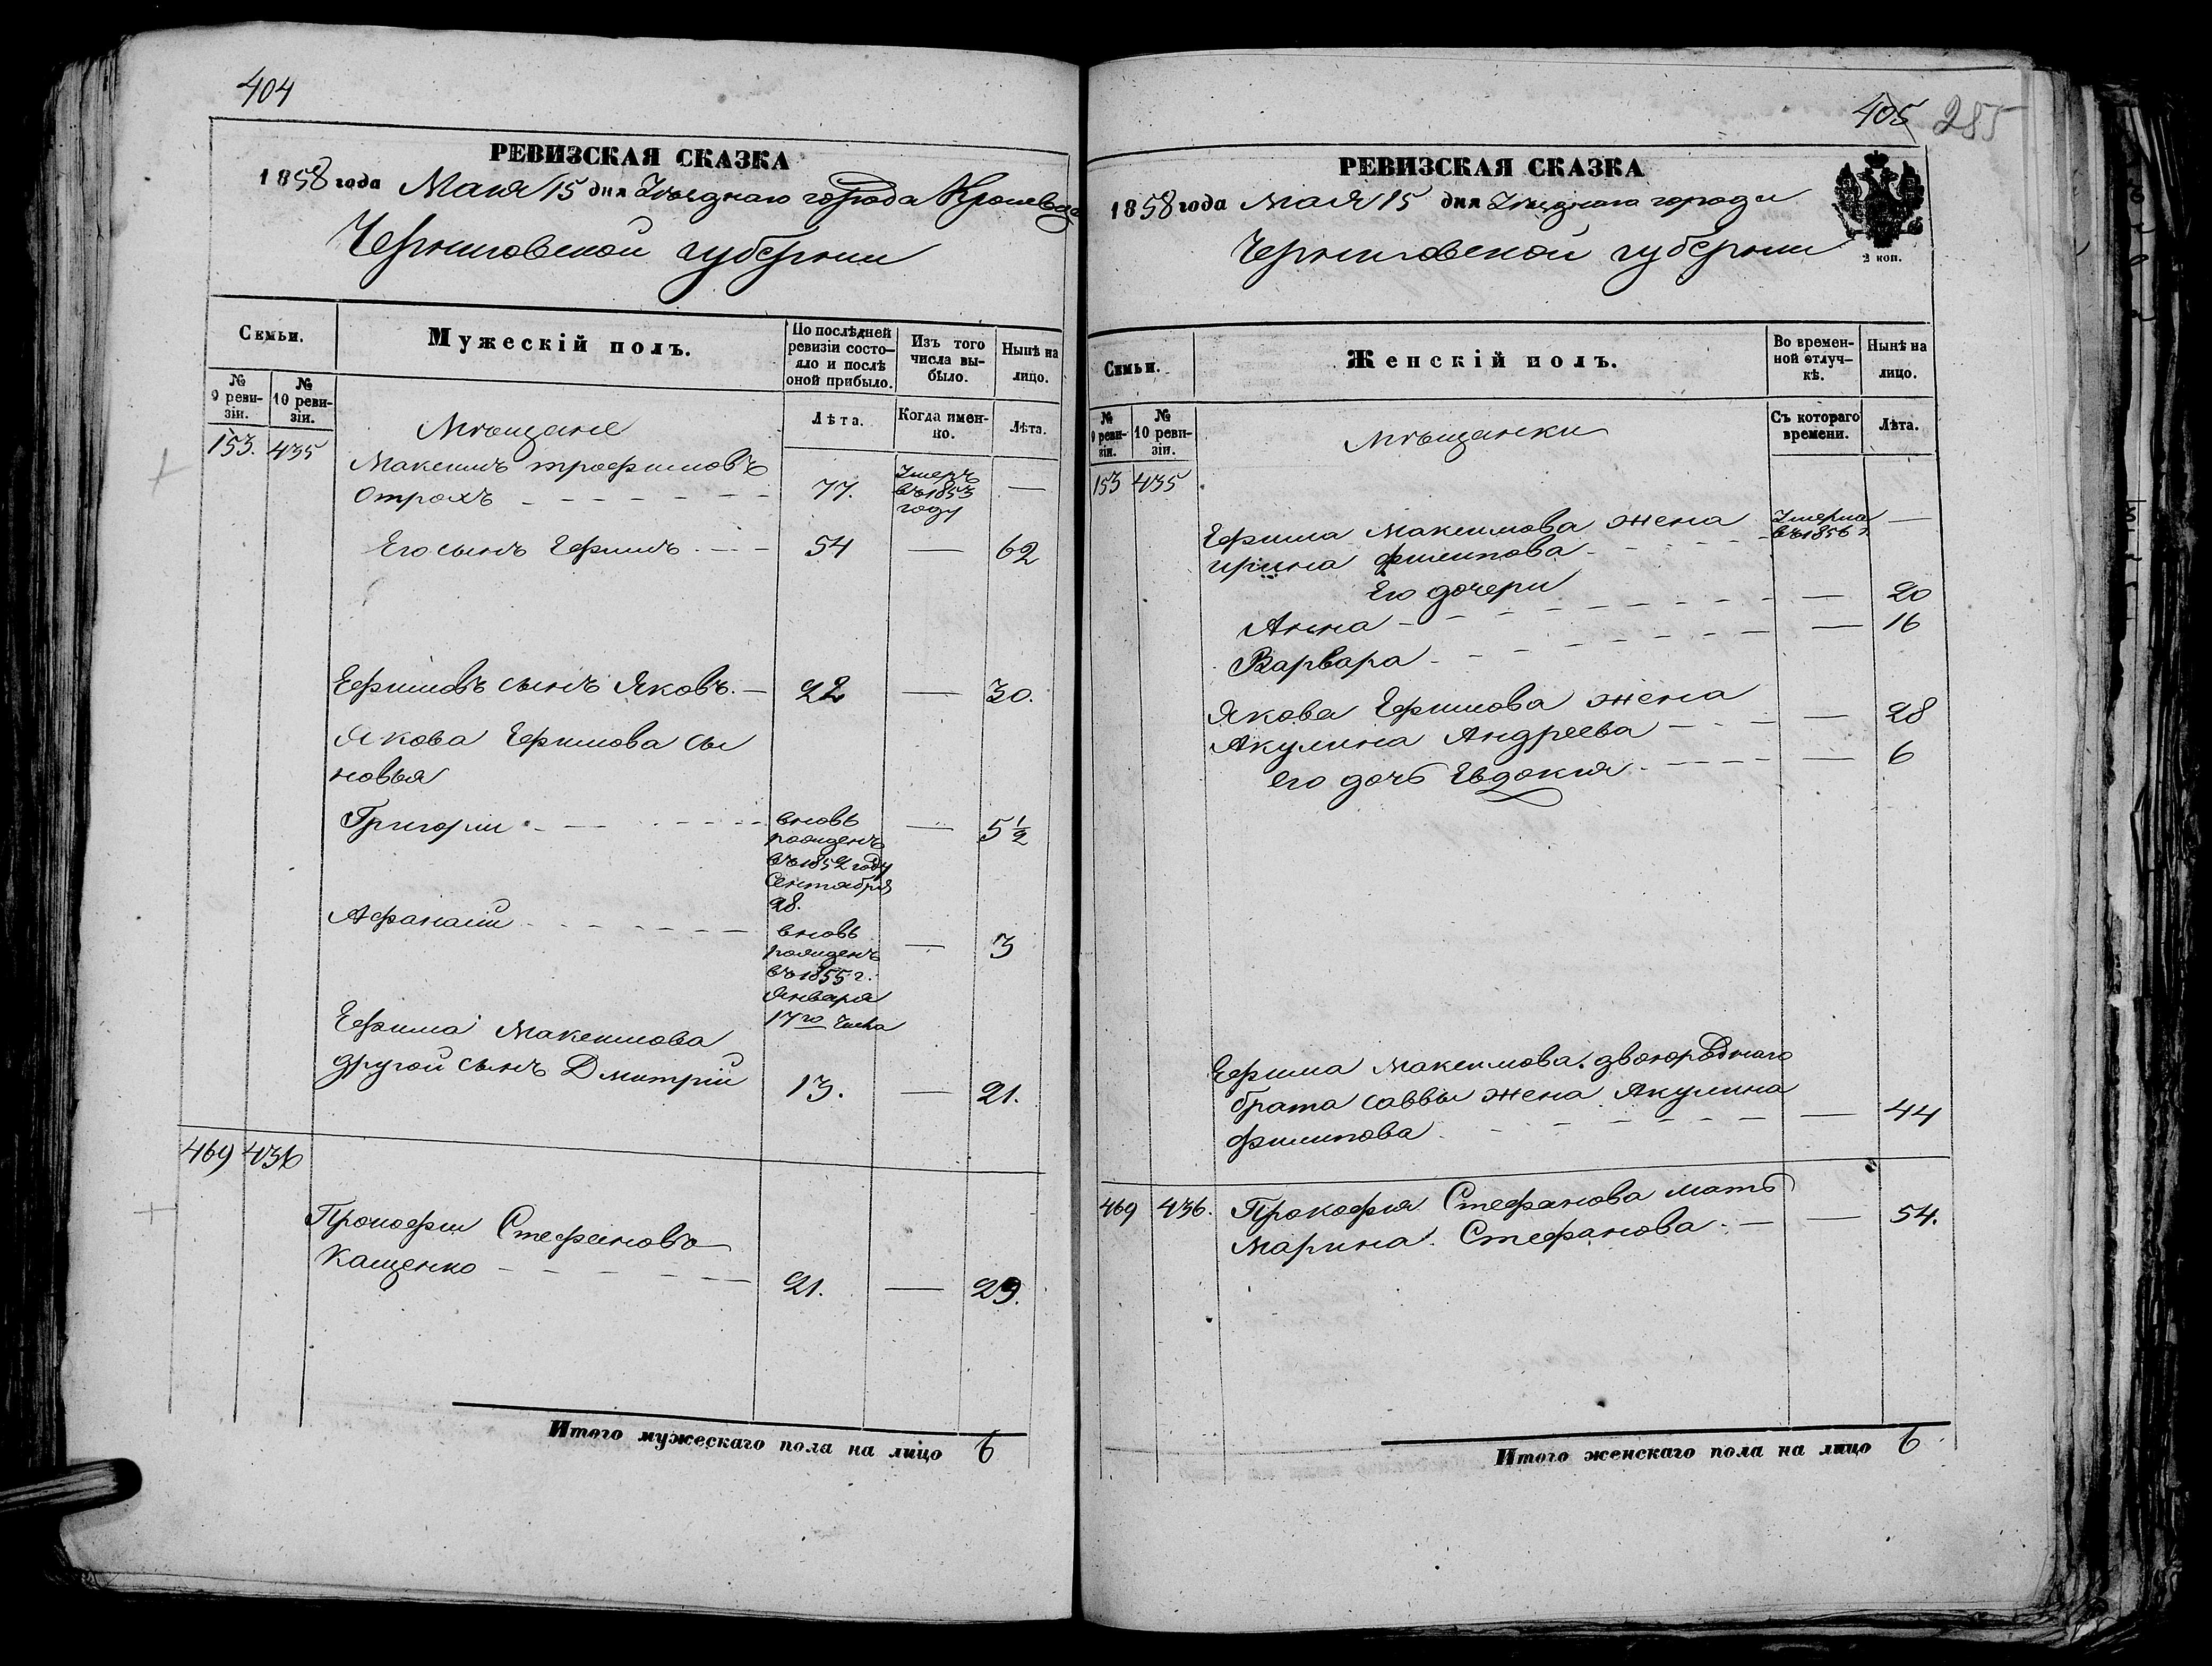 404
РЕВИЗСКАЯ СКАЗКА
1858 года Мая 15 дня Уѣзднаго города Кролевца
Черниговской губернии
Семьи.
Мужескій полъ.
По послѣдней ревизіи состояло и послѣ оной прибыло.
Изъ того числа выбыло.
Нынѣ на лицо.
№ 9 ревизіи.
№ 10 ревизіи.
Лѣта.
Когда именно.
Лѣта.
Мѣщане
153. 435
Максимъ трофимовъ
Отрохъ 77. Умеръ въ 1853 году —
Его сынъ Ефимъ 54 — 62
Ефимовъ сынъ Яковъ. 22 — 30.
Якова Ефимова сы
новья
Григории вновь рожденъ въ 1852 году Сентября 28. — 5 1/2
Афанасии вновь рожденъ въ 1855 г. Января 17го числа — 3
Ефима Максимова
другой сынъ Дмитрій 13. — 21.
469 436
Прокофии Стефановъ
Кащенко 21. — 29.
Итого мужескаго пола на лицо 6
405 285
РЕВИЗСКАЯ СКАЗКА
1858 года Мая 15 дня Уѣзднаго города
Черниговской губернии
2 коп.
Семьи.
Женскій полъ.
Во временной отлучкѣ.
Нынѣ на лицо.
№ 9 ревизіи.
№ 10 ревизіи.
Съ котораго времени.
Лѣта.
Мѣщанки
153 435
Ефима Максимова жена
ирина филипова Умерла въ 1856 г. —
Его дочери
Анна — 20
Варвара — 16
Якова Ефимова жена
Акулина Андреева — 28
его дочь Евдокия — 6
Ефима Максимова двоюроднаго
брата саввы жена Акулина
филипова — 44
469 436. Прокофия Стефанова мать
Марина Стефанова — 54.
Итого женскаго пола на лицо 6